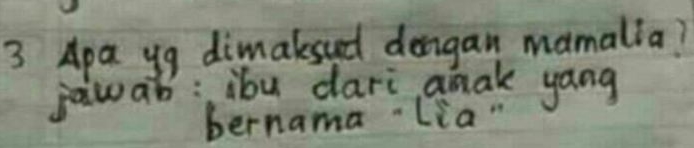 3 Apa yg dimaksud dengan mamalia?
jawab : ibu dari anak yang
bernama "Lia"